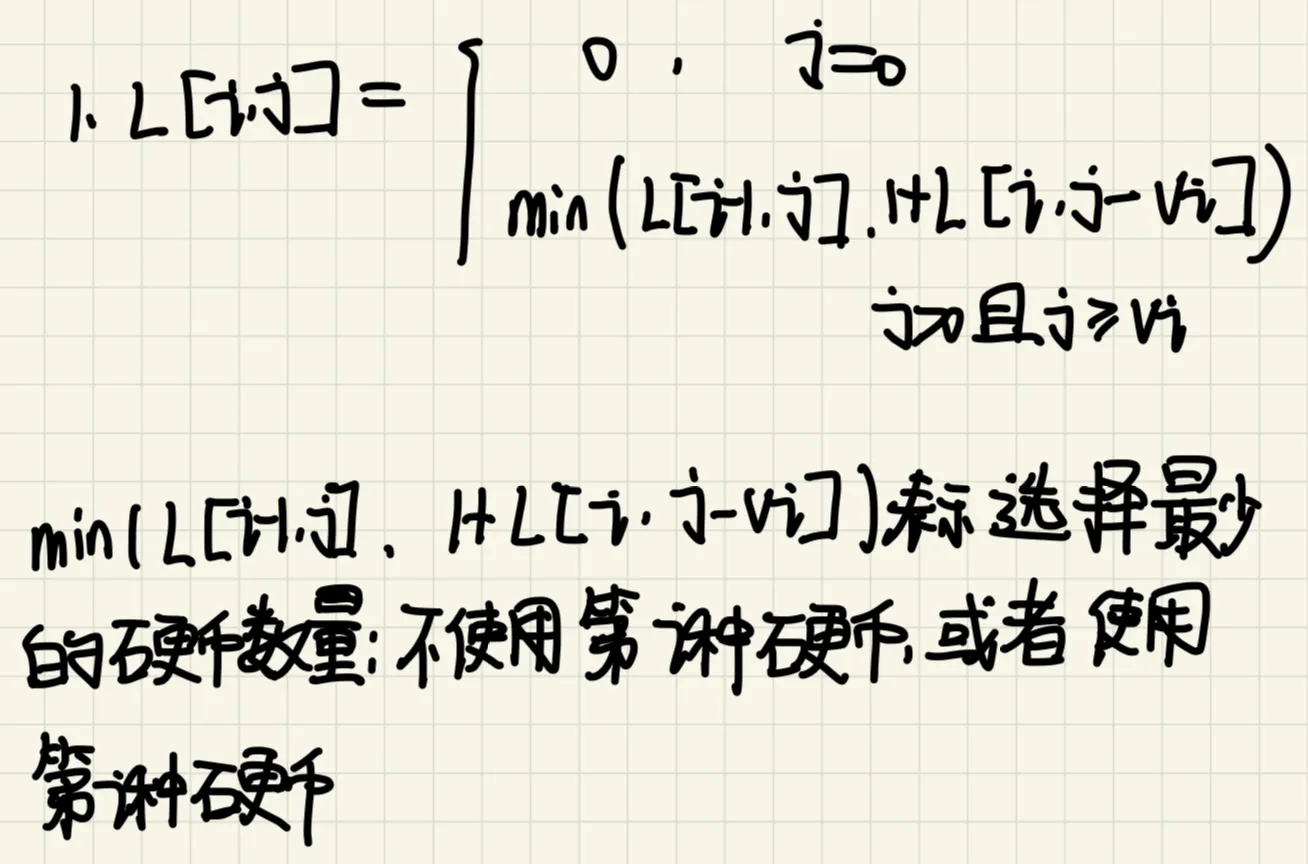 1. L[i,j] = { 0, j=0
min(L[i-1,j], 1+L[i,j-vi])
j>0且j≥vi
min(L[i-1,j], 1+L[i,j-vi])表示选择最少
的硬币数量:不使用第i种硬币,或者使用
第i种硬币